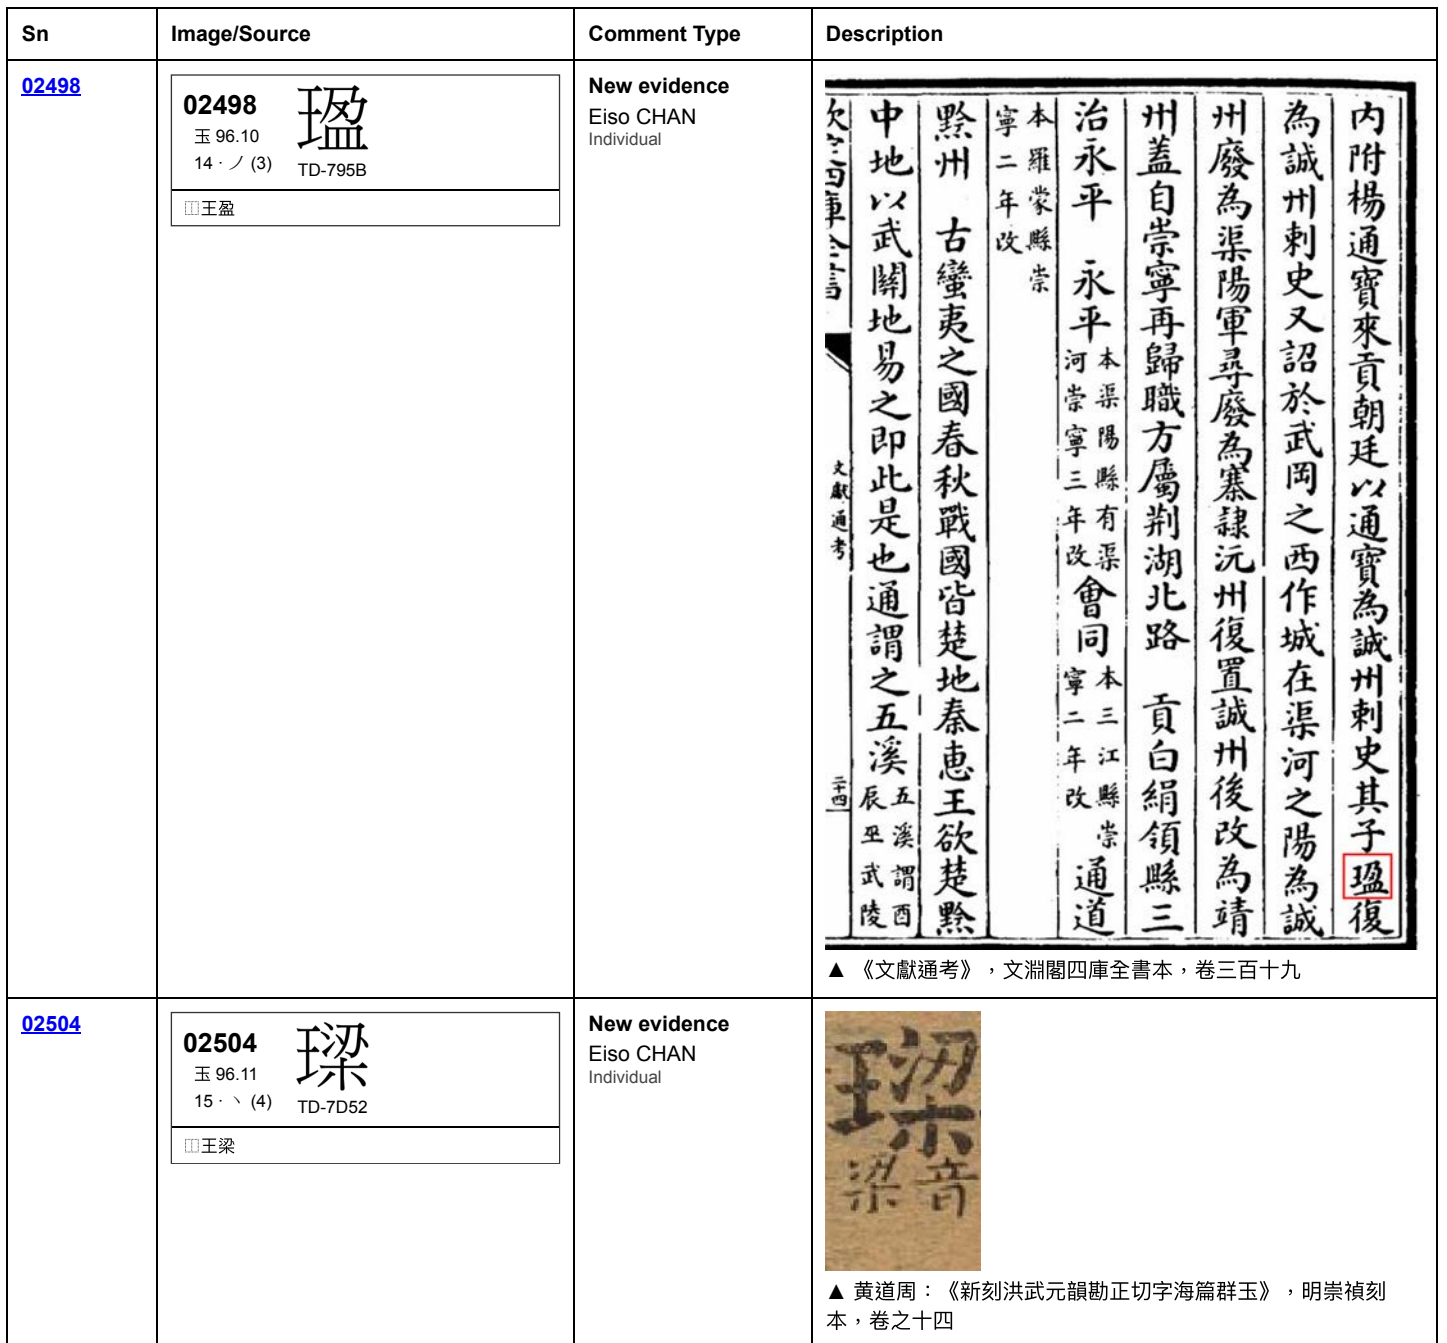 Sn Image/Source Comment Type Description
02498
02498
玉 96.10
14 · ノ (3)
⿰王盈
TD-795B
⿰王盈
New evidence
Eiso CHAN
Individual
内附楊通寶來貢朝廷以通寶為誠州刺史其子⿰王盈復
為誠州刺史又詔於武岡之西作城在渠河之陽為誠
州廢為渠陽軍尋廢為寨隷沅州復置誠州後改為靖
州蓋自崇寧再歸職方屬荆湖北路 貢白絹領縣三
治永平 永平本渠陽縣有渠河崇寧三年改會同本三江縣崇寧二年改通道
本羅蒙縣崇寧二年改
黔州 古蠻夷之國春秋戰國皆楚地秦惠王欲楚黔
中地以武關地易之即此是也通謂之五溪五溪謂酉辰巫武陵
欽定四庫全書
文獻通考
二十四
▲ 《文獻通考》，文淵閣四庫全書本，卷三百十九
02504
02504
玉 96.11
15 · 丶 (4)
⿰王梁
TD-7D52
⿰王梁
New evidence
Eiso CHAN
Individual
⿰王梁
音梁
▲ 黄道周：《新刻洪武元韻勘正切字海篇群玉》，明崇禎刻
本，卷之十四